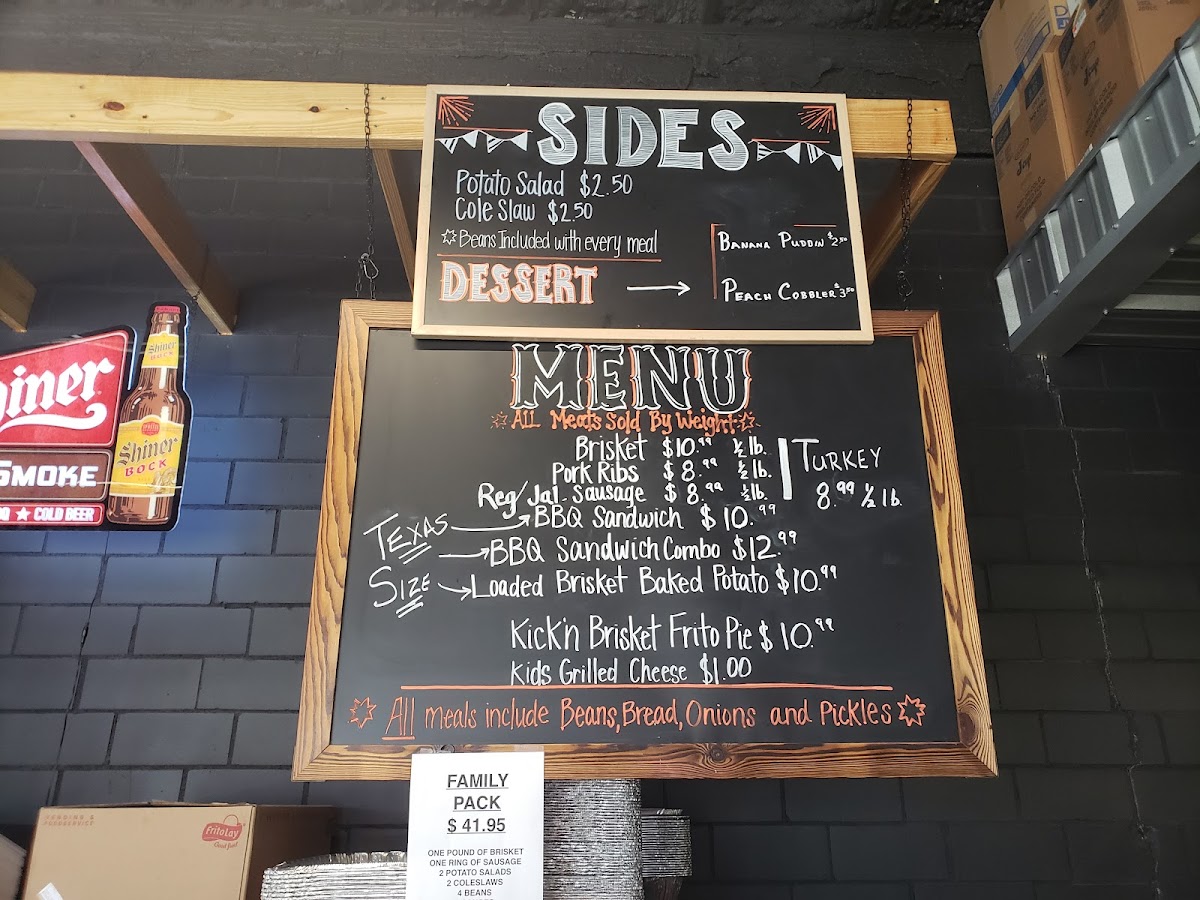 SIDES
Potato Salad $2.50
Cole Slaw $2.50
Beans Included with every meal
DESSERT
BANANA PUDDIN $2.50
PEACH COBBLER $3.50
MENU
ALL Meats Sold By Weight
Brisket $10.99 ½ lb.
Pork Ribs $8.99 ½ lb.
Reg/Jal. Sausage $8.99 ½ lb.
TURKEY
8.99 ½ lb.
TEXAS
SIZE
BBQ Sandwich $10.99
BBQ Sandwich Combo $12.99
Loaded Brisket Baked Potato $10.99
Kick'n Brisket Frito Pie $10.99
Kids Grilled Cheese $1.00
All meals include Beans, Bread, Onions and Pickles
FAMILY
PACK
$ 41.95
ONE POUND OF BRISKET
ONE RING OF SAUSAGE
2 POTATO SALADS
2 COLESLAWS
4 BEANS
iner
SMOKE
COLD BEER
Shiner
BOCK
Shiner
BOCK
FritoLay